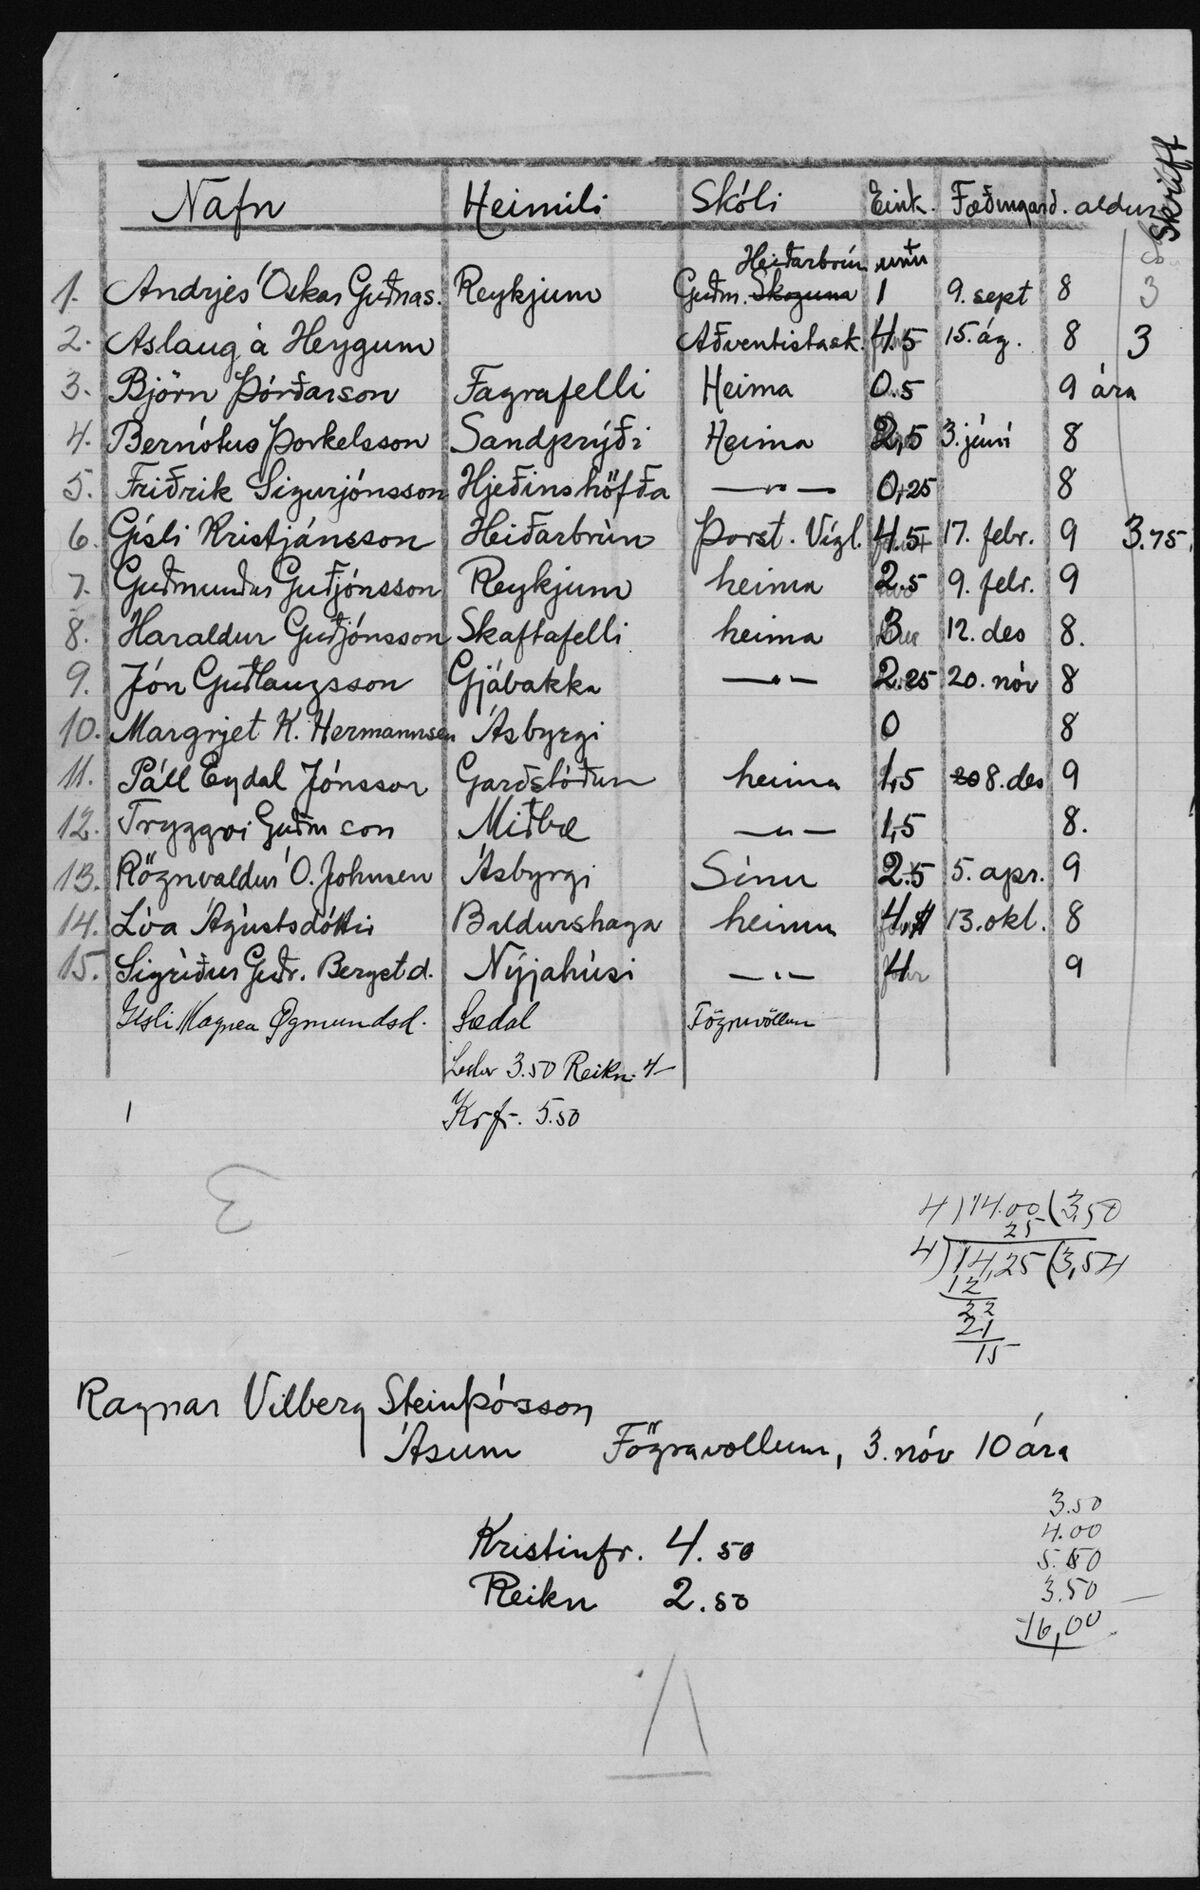 Skrift
Nafn Heimili Skóli Eink. Fæðingard. aldur
Heiðarbrún
1. Andrjes Óskar Guðnas. Reykjum Guðm. 1 9. sept 8 3
2. Aslaug á Heygum Aðventistask. 4.5 15. ág. 8 3
3. Björn Þórðarson Fagrafelli Heima 0.5 9 ára
4. Bernótus Þorkelsson Sandprýði Heima 2,5 3. júní 8
5. Friðrik Sigurjónsson Hjeðinshöfða —"— 0,25 8
6. Gísli Kristjánsson Heiðarbrún Þorst. Vígl. 4.5 17. febr. 9 3.75
7. Guðmundur Guðjónsson Reykjum heima 2.5 9. febr. 9
8. Haraldur Guðjónsson Skaftafelli heima 3 12. des 8.
9. Jón Guðlaugsson Gjábakka —"— 2.25 20. nóv 8
10. Margrjet K. Hermannsen Ásbyrgi 0 8
11. Páll Eydal Jónsson Garðstöðum heima 1,5 8. des 9
12. Tryggvi Guðmson Miðbæ —"— 1,5 8.
13. Rögnvaldur Ó. Johnsen Ásbyrgi Sínu 2.5 5. apr. 9
14. Lóa Ágústsdóttir Baldurshaga heima 4 13. okt. 8
15. Sigríður Guðr. Bergstd. Nýjahúsi —"— 4 9
Magnea Ögmundsd. Sædal Fögruvöllum
3.50 Reikn. 4—
Krfr. 5.50
3
4)14.00(3,50
25
4)14,25(3,54
12
22
21
15
Ragnar Vilberg Steinþórsson
Ásum Fögravollum, 3. nóv 10 ára
3.50
4.00
Kristinfr. 4.50
5.50
Reikn 2.50
3.50
16,00